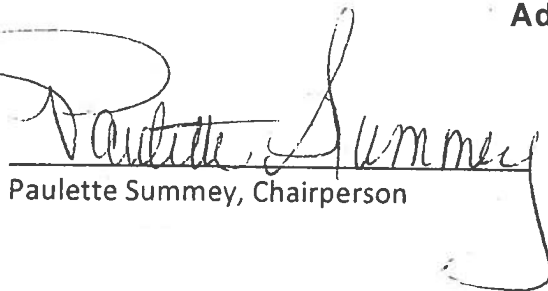 Ad
Paulette Summey
Paulette Summey, Chairperson